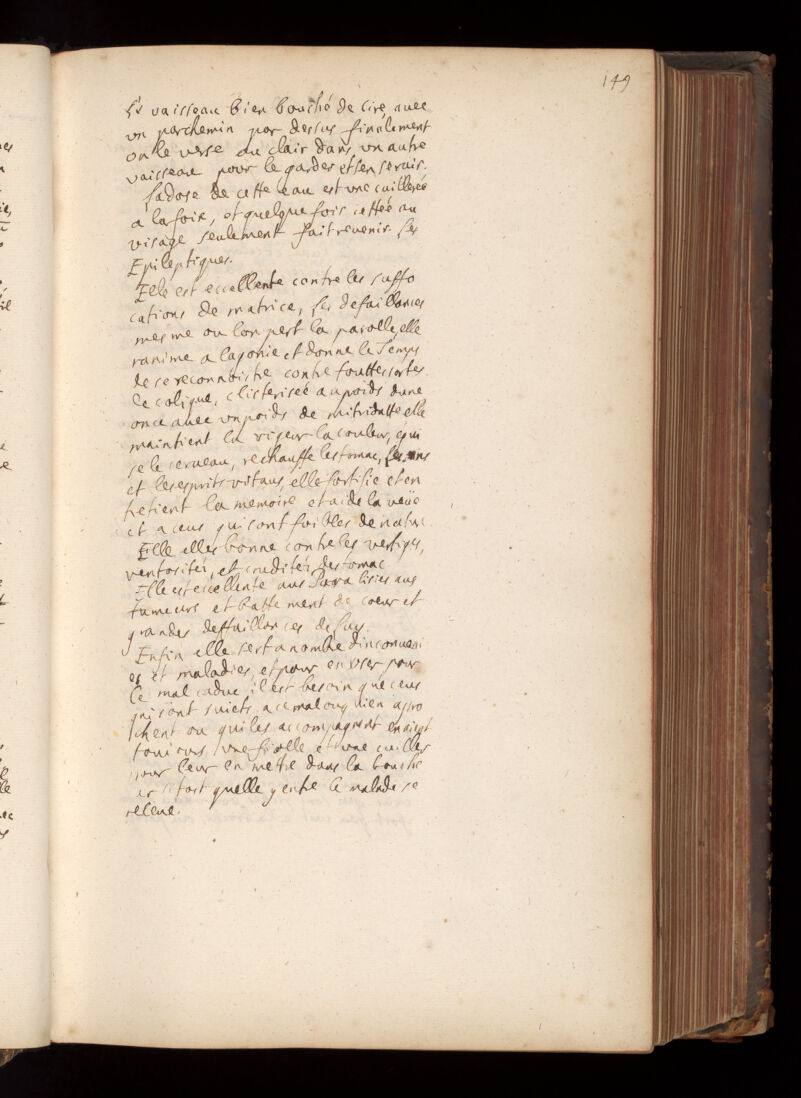 149
Le vaisseau bien bouché de cire auec
vn parchemin par dessus finalement
on le verse au clair dans vn autre
vaisseau pour le garder et sen seruir.
La dose de cette eau est vne cuillereé
a la foix, et quelque fois iettéé au
visage seulement fait reuenir les
Epileptiques.
Elle est eccellente contre les suffo
cations de matrice, les defaillances
mesme ou lon pert la parolle, elle
ranime a lagonie et donne le Temps
de se reconnoistre contre fouttes sortes
de colique, clisteriseé au poids dune
once auec vn poids de mitridatte elle
maintient la vigeur la couleur, epui
se le cerueau, rechauffe lestomac, les
et les esprits vitaus, elle fortifie et en
tretient la memoire et aide la veüe
et a ceus qui sont foibles de nature
Elle elles bonne contre les vertiges,
ventositéz, et cruditéz destomac
Elle est eccellente aus Paralisies aus
tumeurs et battement de coeur et
grandes deffaillances
Enfin elle sert a nombre dinconueni
es et maladies, et pour en vser pour
le mal caduc, il est besoin que ceus
qui sont suiets a ce mal ou quien apro
chent ou qui les accompagnent en aient
tousiours vne fiolle et vne cuiller
pour leur en mettre dans la bouche
tost quelle y entre le malade se
releue.